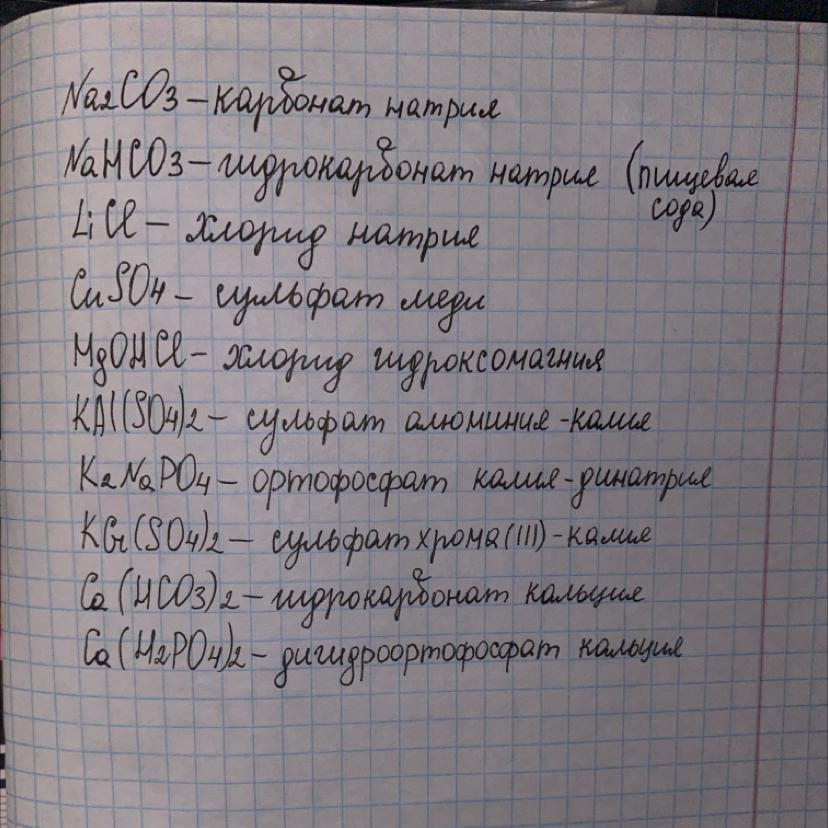 Na2CO3 – карбонат натрия
NaHCO3 – гидрокарбонат натрия (пищевая
сода)
LiCl – хлорид натрия
CuSO4 – сульфат меди
MgOHCl – хлорид гидроксомагния
KAl(SO4)2 – сульфат алюминия-калия
K2NaPO4 – ортофосфат калия-динатрия
KCr(SO4)2 – сульфат хрома(III)-калия
Ca(HCO3)2 – гидрокарбонат кальция
Ca(H2PO4)2 – дигидроортофосфат кальция